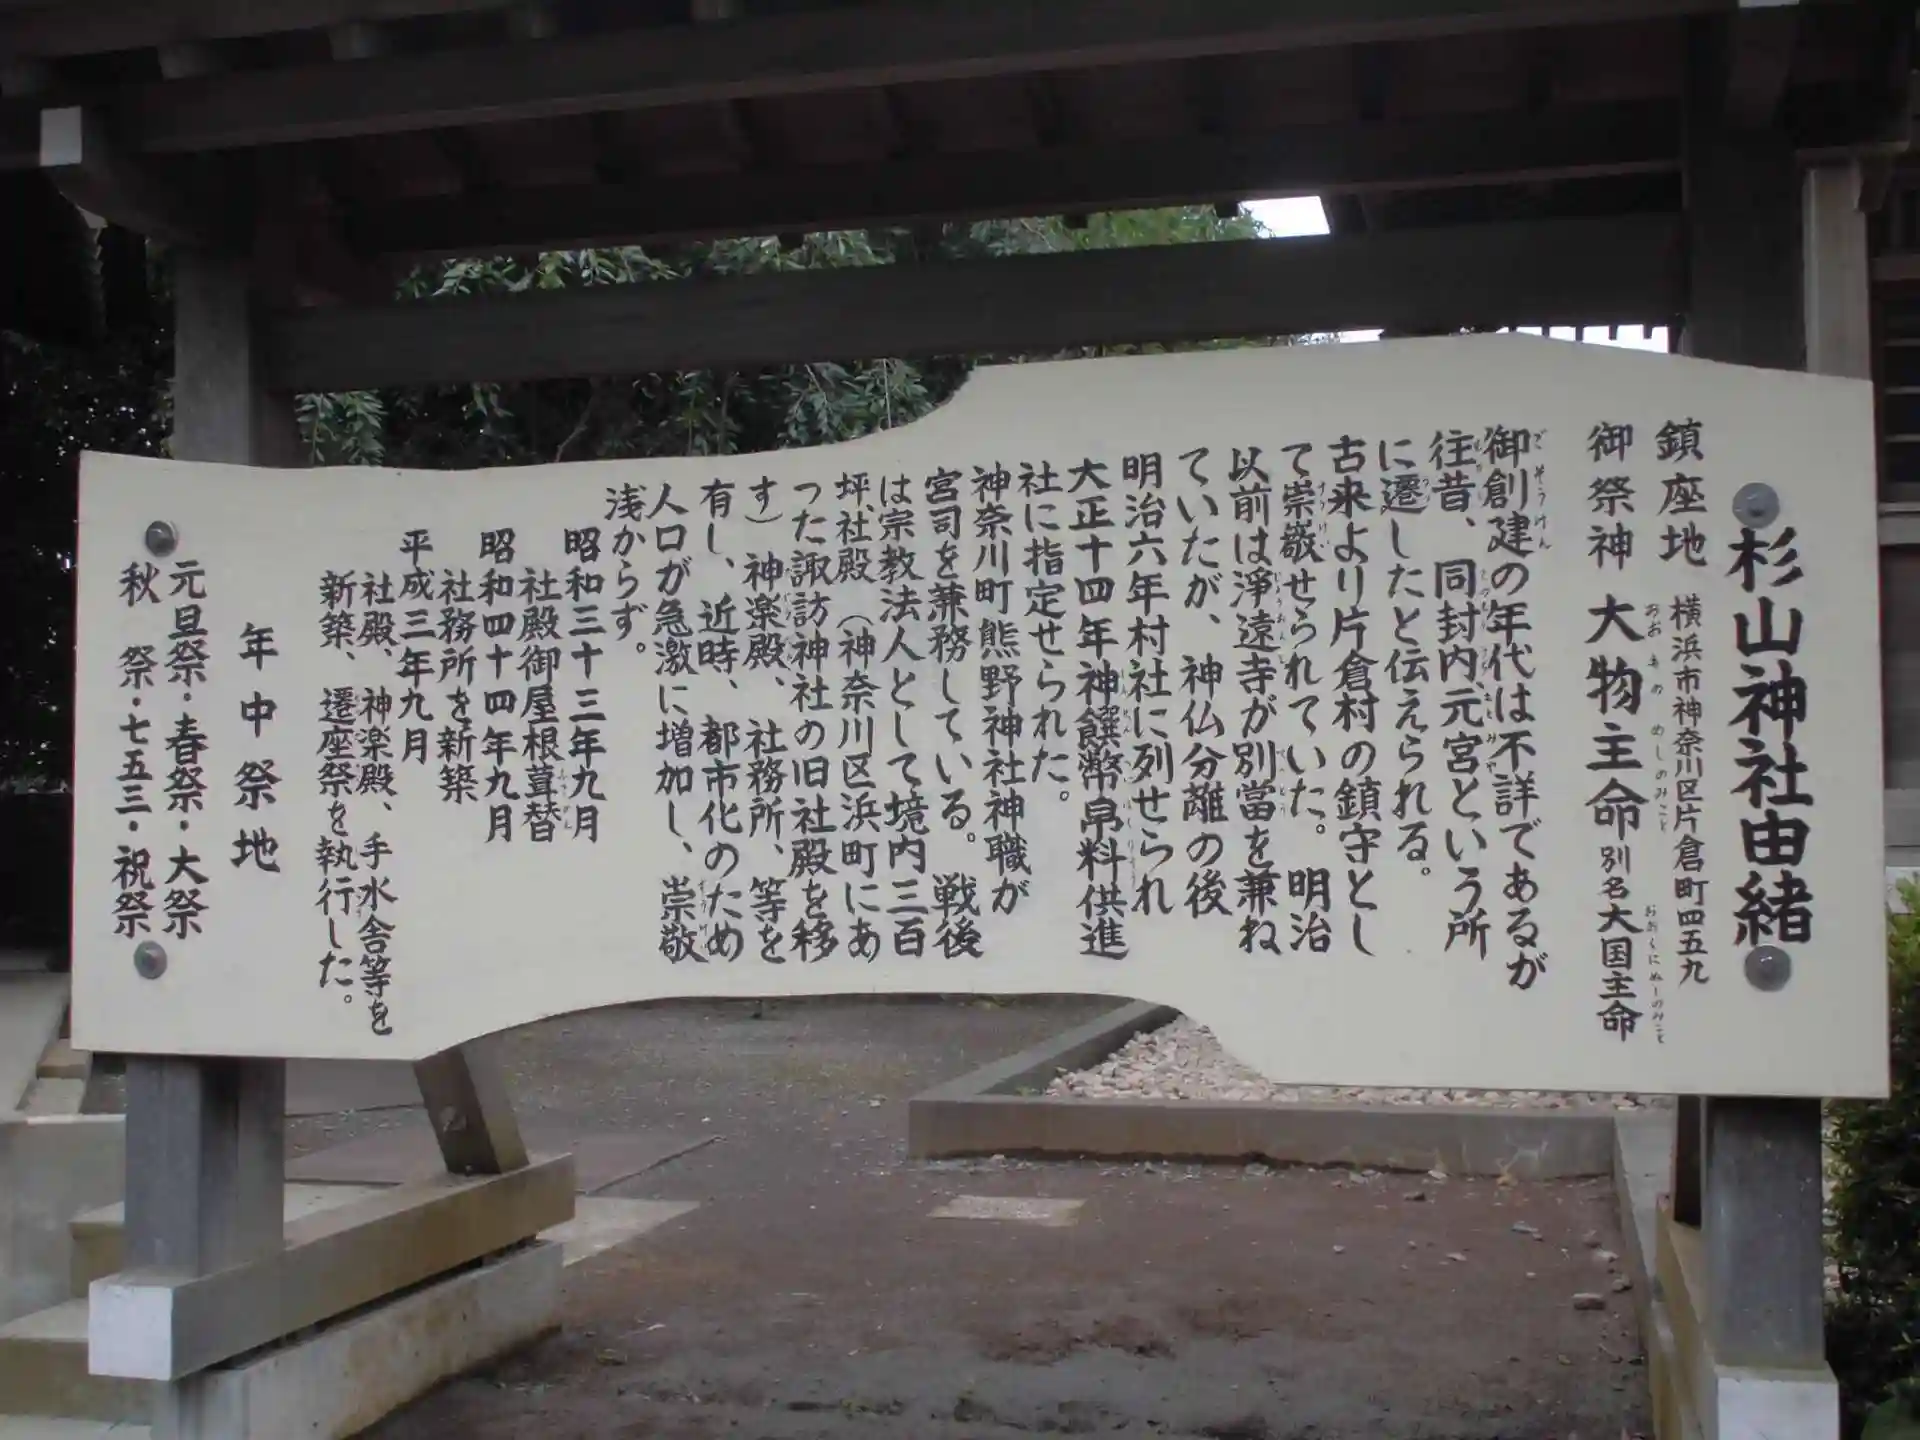 杉山神社由緒
鎮座地 横浜市神奈川区片倉町四五九
御祭神 大物主命 別名大国主命
御創建の年代は不詳であるが
往昔、同封内、元宮という所
に遷したと伝えられる。
古来より片倉村の鎮守とし
て崇嶽せられていた。明治
以前は淨遠寺が別當を兼ね
ていたが、神仏分離の後
明治六年村社に列せられ
大正十四年神饌幣帛料供進
社に指定せられた。
神奈川町熊野神社神職が
宮司を兼務している。戦後
は宗教法人として境内三百
坪、社殿（神奈川区浜町にあ
った諏訪神社の旧社殿を移
す）神楽殿、社務所、等を
有し、近時、都市化のため
人口が急激に増加し、崇敬
浅からず。
昭和三十三年九月
社殿御屋根葺替
昭和四十四年九月
社務所を新築
平成三年九月
社殿、神楽殿、手水舎等を
新築、遷座祭を執行した。
年中祭地
元旦祭・春祭・大祭
秋祭・七五三・祝祭